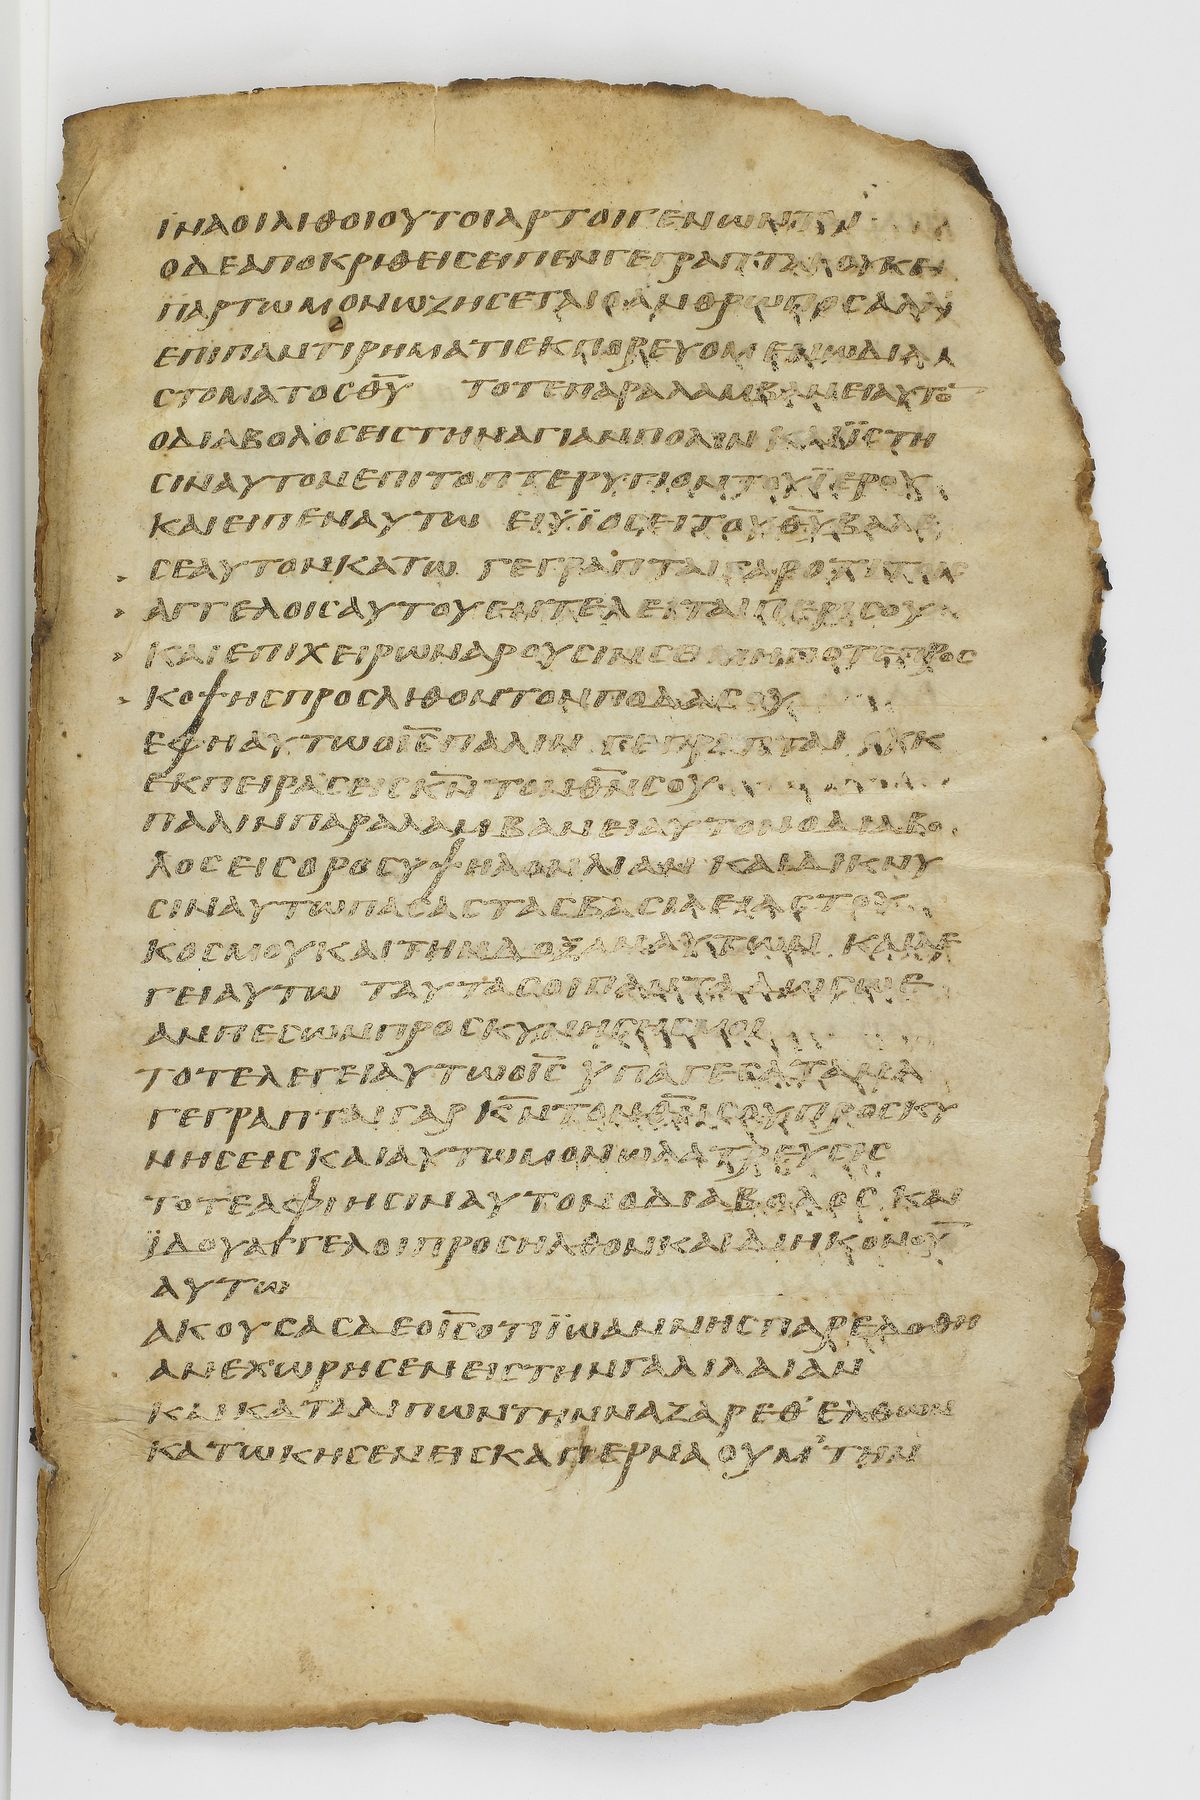 ΪΝΑΟΙΛΙΘΟΙΟΥΤΟΙΑΡΤΟΙΓΕΝΩΝΤΑΙ
ΟΔΕΑΠΟΚΡΙΘΕΙΣΕΙΠΕΝΓΕΓΡΑΠΤΑΙΟΥΚΕΝ
ΠΑΡΤΩΜΟΝΩΖΗΣΕΤΑΙΟΑΝΘΡΩΠΟΣΑΛΛ
ΕΠΙΠΑΝΤΙΡΗΜΑΤΙΕΚΠΟΡΕΥΟΜΕΝΩΔΙΑ
ΣΤΟΜΑΤΟΣΘ̅Υ̅ ΤΟΤΕΠΑΡΑΛΑΜΒΑΝΕΙΑΥΤΟ̅
ΟΔΙΑΒΟΛΟΣΕΙΣΤΗΝΑΓΙΑΝΠΟΛΙΝ ΚΑΙΪΣΤΗ
ΣΙΝΑΥΤΟΝΕΠΙΤΟΠΤΕΡΥΓΙΟΝΤΟΥΪΕΡΟΥ
ΚΑΙΕΙΠΕΝΑΥΤΩ ΕΙΫΙΟΣΕΙΤΟΥΘ̅Υ̅ΒΑΛΕ
ΣΕΑΥΤΟΝΚΑΤΩ ΓΕΓΡΑΠΤΑΙΓΑΡΟΤΙΤΟΙΣ
ΑΓΓΕΛΟΙΣΑΥΤΟΥΕΝΤΕΛΕΙΤΑΙΠΕΡΙΣΟΥ
ΚΑΙΕΠΙΧΕΙΡΩΝΑΡΟΥΣΙΝΣΕ ΜΗΠΟΤΕΠΡΟΣ
ΚΟΨΗΣΠΡΟΣΛΙΘΟΝΤΟΝΠΟΔΑΣΟΥ
ΕΦΗΑΥΤΩΟΙ̅Σ̅ΠΑΛΙΝ ΓΕΓΡΑΠΤΑΙ ΟΥΚ
ΕΚΠΕΙΡΑΣΕΙΣΚ̅Ν̅ΤΟΝΘ̅Ν̅ΣΟΥ
ΠΑΛΙΝΠΑΡΑΛΑΜΒΑΝΕΙΑΥΤΟΝΟΔΙΑΒΟ
ΛΟΣΕΙΣΟΡΟΣΥΨΗΛΟΝΛΙΑΝ ΚΑΙΔΙΚΝΥ
ΣΙΝΑΥΤΩΠΑΣΑΣΤΑΣΒΑΣΙΛΕΙΑΣΤΟΥ
ΚΟΣΜΟΥΚΑΙΤΗΝΔΟΞΑΝΑΥΤΩΝ ΚΑΙΛΕ
ΓΕΙΑΥΤΩ ΤΑΥΤΑΣΟΙΠΑΝΤΑΔΩΣΩΕ
ΑΝΠΕΣΩΝΠΡΟΣΚΥΝΗΣΗΣΜΟΙ
ΤΟΤΕΛΕΓΕΙΑΥΤΩΟΙ̅Σ̅ ΫΠΑΓΕΣΑΤΑΝΑ
ΓΕΓΡΑΠΤΑΙΓΑΡ Κ̅Ν̅ΤΟΝΘ̅Ν̅ΣΟΥΠΡΟΣΚΥ
ΝΗΣΕΙΣΚΑΙΑΥΤΩΜΟΝΩΛΑΤΡΕΥΣΙΣ
ΤΟΤΕΑΦΙΗΣΙΝΑΥΤΟΝΟΔΙΑΒΟΛΟΣ ΚΑΙ
ΪΔΟΥΑΓΓΕΛΟΙΠΡΟΣΗΛΘΟΝΚΑΙΔΙΗΚΟΝΟΥ̅
ΑΥΤΩ
ΑΚΟΥΣΑΣΔΕΟΙ̅Σ̅ΟΤΙΪΩΑΝΝΗΣΠΑΡΕΔΟΘΗ
ΑΝΕΧΩΡΗΣΕΝΕΙΣΤΗΝΓΑΛΙΛΑΙΑΝ
ΚΑΙΚΑΤΑΛΙΠΩΝΤΗΝΝΑΖΑΡΕΘ᾽ΕΛΘΩΝ
ΚΑΤΩΚΗΣΕΝΕΙΣΚΑΠΕΡΝΑΟΥΜ᾽ΤΗΝ